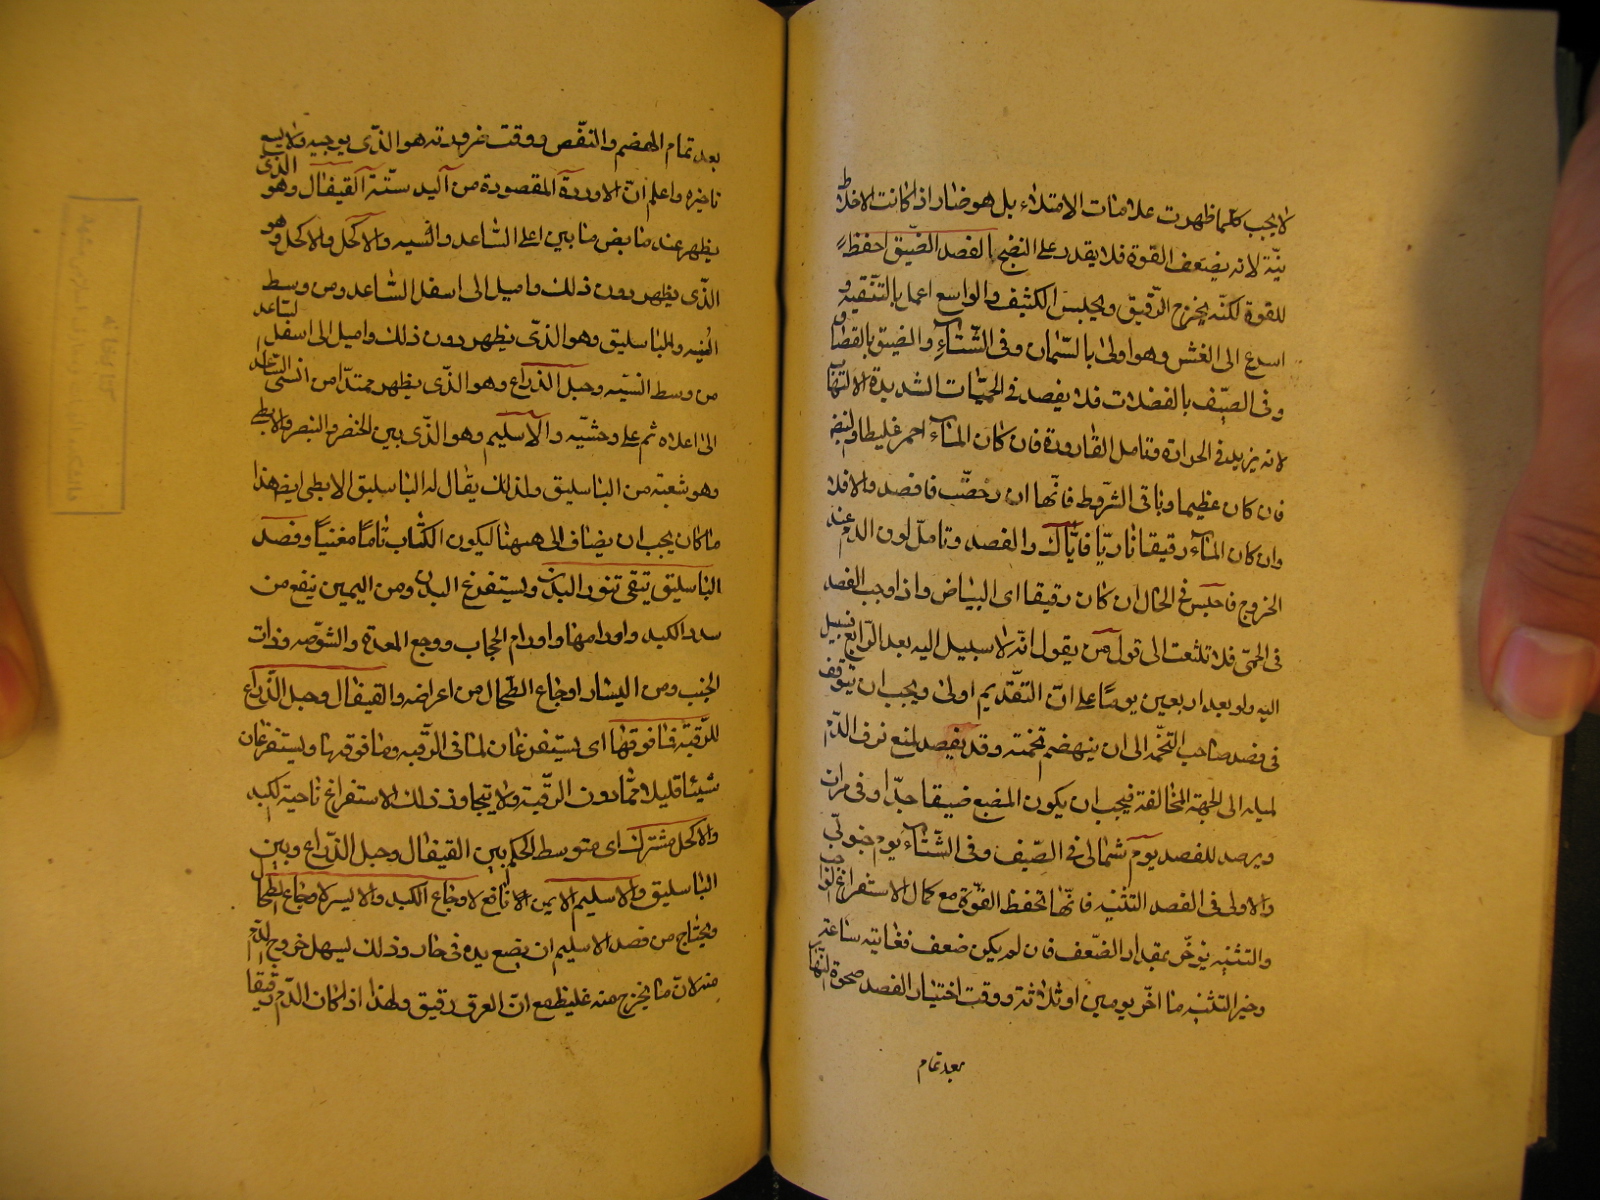 لا يجب كلما ظهرت علامات الامتلاء بل هو ضار اذا كانت الاخلاط
نيّة لانه يضعف القوة فلا يقدر على النضج الفصد الضيّق احفظ
للقوة لكنّه يخرج الرّقيق ويحبس الكثيف والواسع اعمل بالتنقيه و
اسرع الى الغشى وهو اولى بالسّمان وفى الشّتآء والضيق بالقضاف
وفى الصيّف بالفضلات فلا يفصد فى الحمّيات الشديدة الالتهاب
لانه يزيد فى الحرارة وتامل القارورة فان كان المآء احمر غليظا والنبض
فان كان عظيما وباقى الشّروط فانّها ان رخصّت فافصد والا فلا
وان كان المآء رقيقا ناريّا فايّاك والفصد وتامّل لون الدّم عند
الخروج فاحبس فى الحال ان كان رقيقا اى البياض واذا وجب الفصد
فى الحمّى فلا تلتفت الى قول من يقول انّه لا سبيل اليه بعد الرّابع فسبيل
اليه ولو بعد اربعين يوما على انّ التقديم اولى ويجب ان يتوقف
فى فصد صاحب التخمه الى ان ينهضم تخمته وقد يفصد لمنع نزف الدّم
لميله الى الجهة المخالفة فيجب ان يكون المبضع ضيقا جدّا وفى مرات
ويرصد للفصد يوم شمالى فى الصّيف وفى الشّتآء يوم جنوبّى
والاولى فى الفصد التثنيه فانّها تحفظ القوّة مع كمال الاستفراغ الواجب
والتثنيه يؤخّر بمقدار الضّعف فان لم يكن ضعف فغايته ساعة
وخير التثنيه ما اخّر يومين او ثلاثة ووقت اختيار الفصد ضحوة النّهار
بعد تمام
بعد تمام الهضم والنّفض ووقت ضرورته هو الذّى يوجبه ولا يسع
تاخيره واعلم انّ الاوردة المقصودة من اليد ستّة القيفال وهو الذى
يظهر عند مابض ما بين اعلى السّاعد وانسيه والاكحل والاكحل وهو
الذّى يظهر دون ذلك واميل الى اسفل السّاعد ومن وسط
انسيه والباسليق وهو الذّى يظهر دون ذلك واميل الى اسفل لساعد
من وسط انسيّه وحبل الذّراع وهو الذّى يظهر ممتدّا من انسى السّاعد
الى اعلاه ثم على وحشيّه والاسليم وهو الذّى بين الخنصر والبنصر والابطى
وهو شعبة من الباسليق ولذلك يقال له الباسليق الابطى ايضا هذا
ما كان يجب ان يضاف الى هيهنا ليكون الكتاب تامّا مغنيا وفصد
الباسليق تنقى تنور البدن ويستفرغ البدن ومن اليمين ينفع من
سدد الكبد واورامها واورام الحجاب ووجع المعدة والشوّصه وذات
الجنب ومن اليسار اوجاع الطّحال من اعراضه والقيفال وحبل الذّراع
للرّقبة فما فوقها اى يستفرغان لما فى الرّقبه وما فوقها ويستفرغان
شيئا قليلا ممّا دون الرقبة ولا يتجاوز ذلك الاستفراغ ناحية لكبد
والاكحل مشترك اى متوسط الحكم بين القيفال وحبل الذّراع وبين
الباسليق والاسليم الايمن الانافع لاوجاع الكبد والايسر لاوجاع الطحال
ويحتاج من فصد الاسليم ان يضع يده فى حار وذلك ليسهل خروج الدّم
منه لانّ ما يخرج منه غليظ مع انّ العرق رقيق ولهذا اذا كان الدّم رقيقا